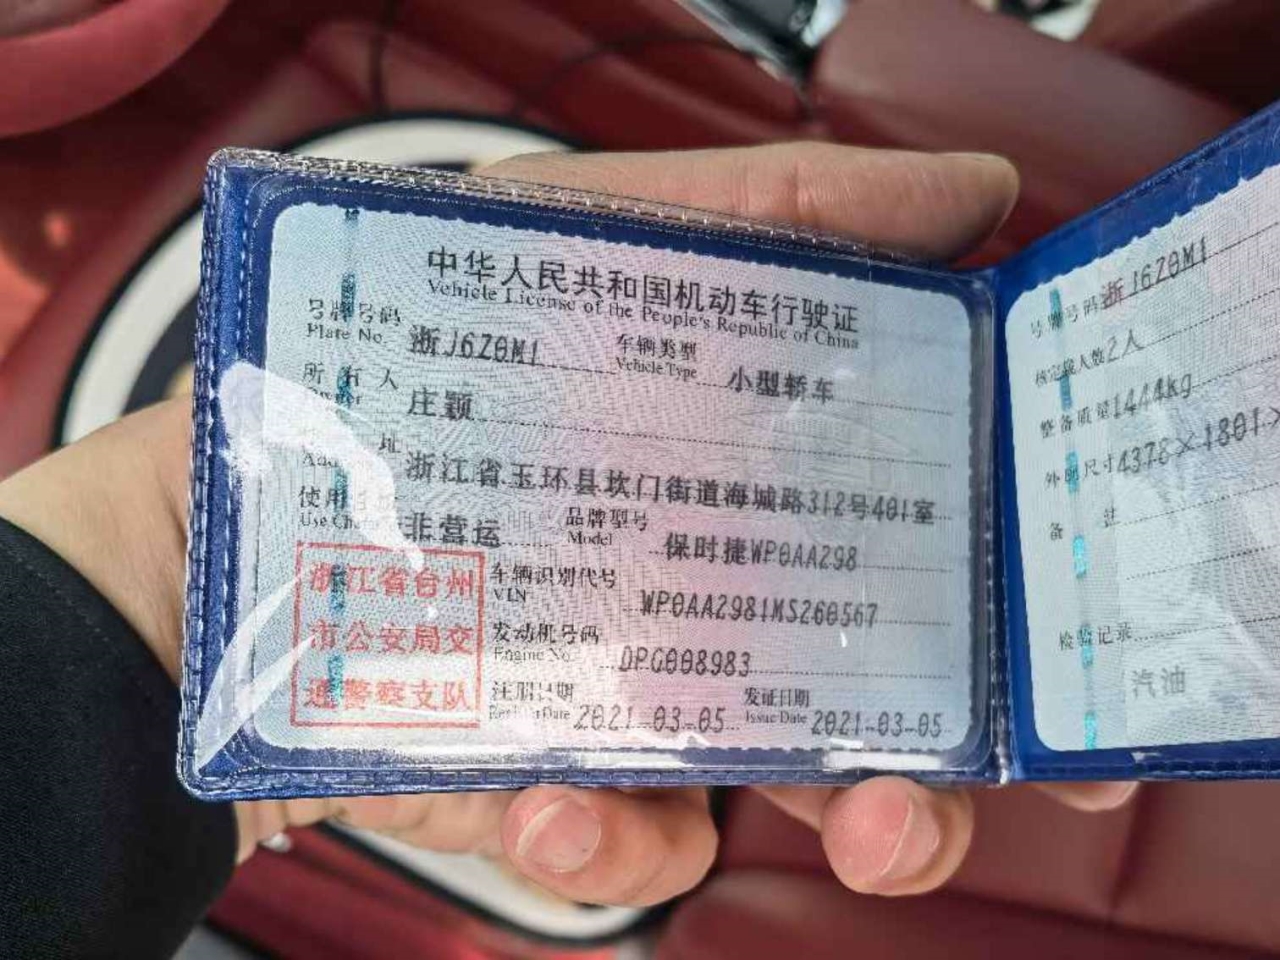 中华人民共和国机动车行驶证
Vehicle License of the People's Republic of China
号牌号码 浙J6Z0M1 车辆类型 小型轿车
Plate No. Vehicle Type
所有人 庄颖
址 浙江省玉环县坎门街道海城路312号401室
使用 非营运 品牌型号 保时捷WP0AA298
Use Model
车辆识别代号 WP0AA2981MS260567
VIN
发动机号码 DPG008983
Engine No.
注册日期 2021-03-05 发证日期 2021-03-05
Register Date Issue Date
浙江省台州
市公安局交
通警察支队
号牌号码 浙J6Z0M1
核定载人数 2人
整备质量 1444kg
外廓尺寸 4378×1801×
备 注
检验记录
汽油